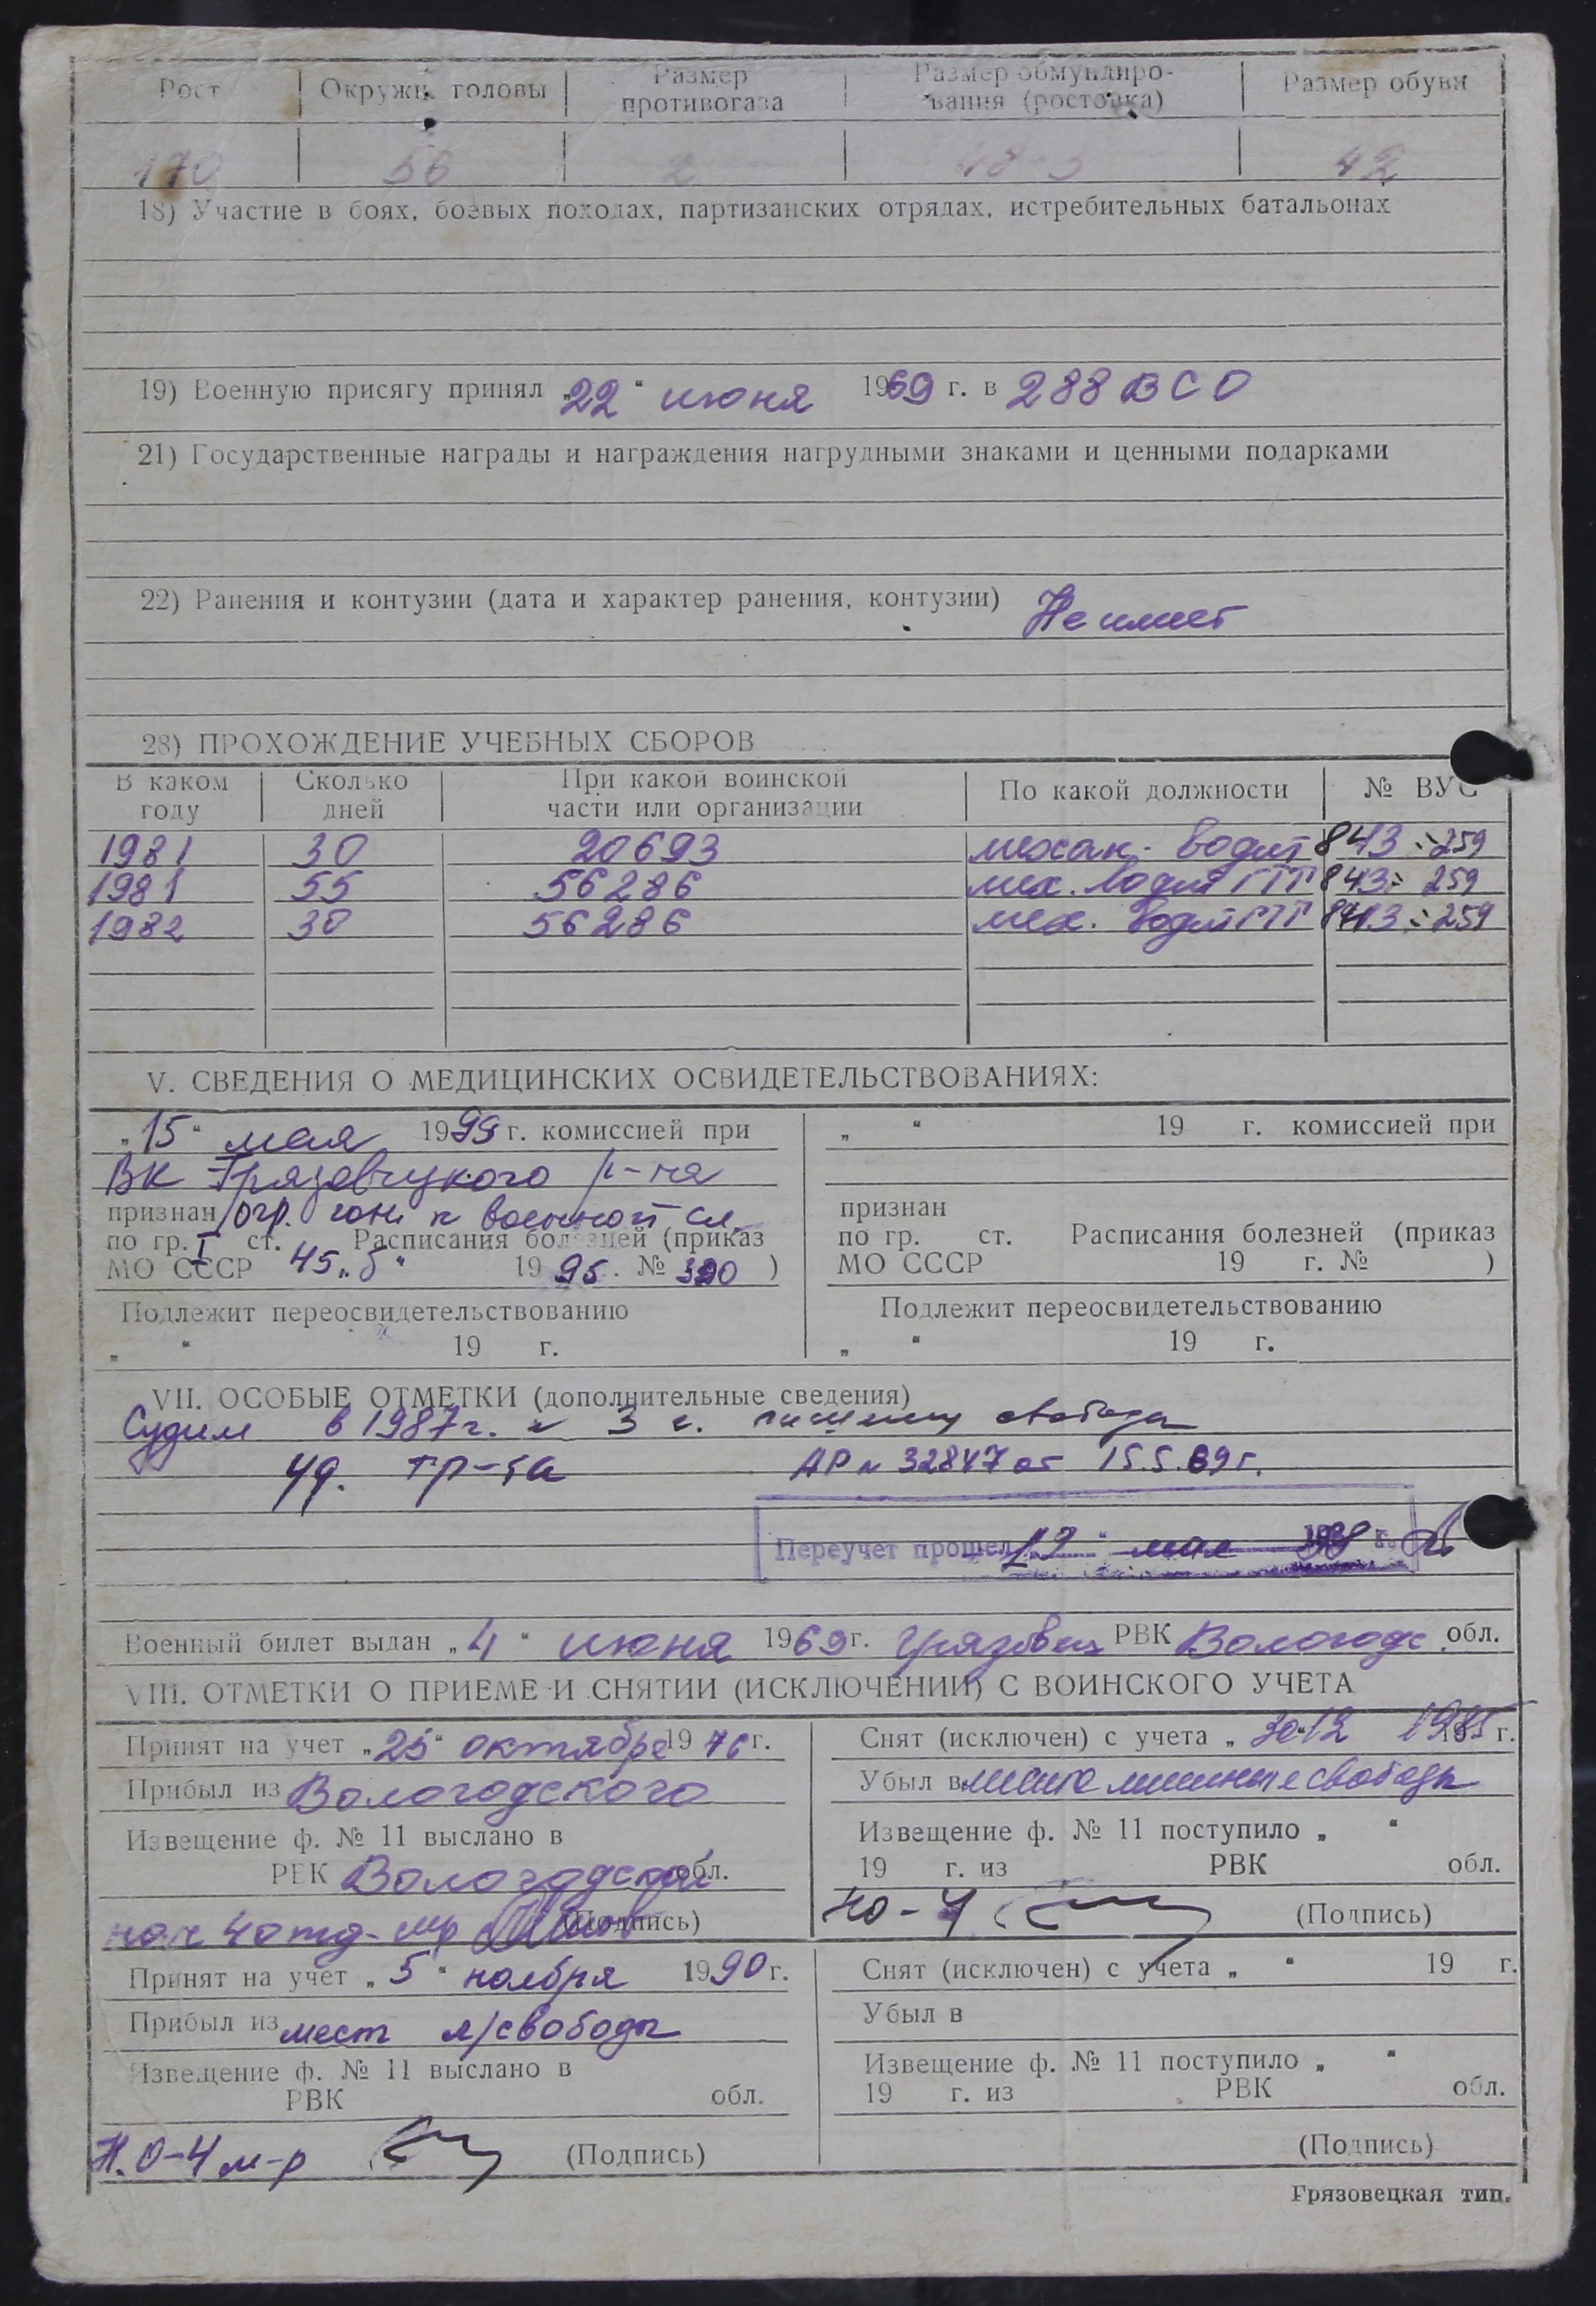 Рост Окружн. головы Размер противогаза Размер обмундиро-вания (ростовка) Размер обуви
170 56 2 48-3 42
18) Участие в боях, боевых походах, партизанских отрядах, истребительных батальонах
19) Военную присягу принял „22" июня 1969 г. в 288 ВСО
21) Государственные награды и награждения нагрудными знаками и ценными подарками
22) Ранения и контузии (дата и характер ранения, контузии) Не имеет
28) ПРОХОЖДЕНИЕ УЧЕБНЫХ СБОРОВ
В каком году Сколько дней При какой воинской части или организации По какой должности № ВУС
1981 30 20693 механ. водит 843 259
1981 55 56286 мех. водит ГТТ 843 259
1982 30 56286 мех. водит ГТТ 843 259
V. СВЕДЕНИЯ О МЕДИЦИНСКИХ ОСВИДЕТЕЛЬСТВОВАНИЯХ:
„15" мая 1999 г. комиссией при
ВК Грязовецкого р-на
признан огр. годн к военной сл.
по гр. I ст. Расписания болезней (приказ
МО СССР 45„б" 1995. № 390 )
Подлежит переосвидетельствованию
„ " 19 г.
„ " 19 г. комиссией при
признан
по гр. ст. Расписания болезней (приказ
МО СССР 19 г. № )
Подлежит переосвидетельствованию
„ " 19 г.
VII. ОСОБЫЕ ОТМЕТКИ (дополнительные сведения)
Судим в 1987г. к 3 г. лишению свободы
уд. тр-та АР № 32847 от 15.5.89г.
Переучет прошел „12" мая г.
Военный билет выдан „4" июня 1969г. Грязовец РВК Вологодс. обл.
VIII. ОТМЕТКИ О ПРИЕМЕ И СНЯТИИ (ИСКЛЮЧЕНИИ) С ВОИНСКОГО УЧЕТА
Принят на учет „25" октября 1976г.
Прибыл из Вологодского
Извещение ф. № 11 выслано в
РВК Вологодской обл.
нач 4 отд. м-р (Подпись)
Снят (исключен) с учета „ 30-12 1985 г.
Убыл в места лишения свободы
Извещение ф. № 11 поступило „ "
19 г. из РВК обл.
НО-4 (Подпись)
Принят на учет „5" ноября 1990г.
Прибыл из мест л/свободы
Извещение ф. № 11 выслано в
РВК обл.
Н.О-4 м-р (Подпись)
Снят (исключен) с учета „ " 19 г.
Убыл в
Извещение ф. № 11 поступило „ "
19 г. из РВК обл.
(Подпись)
Грязовецкая тип.